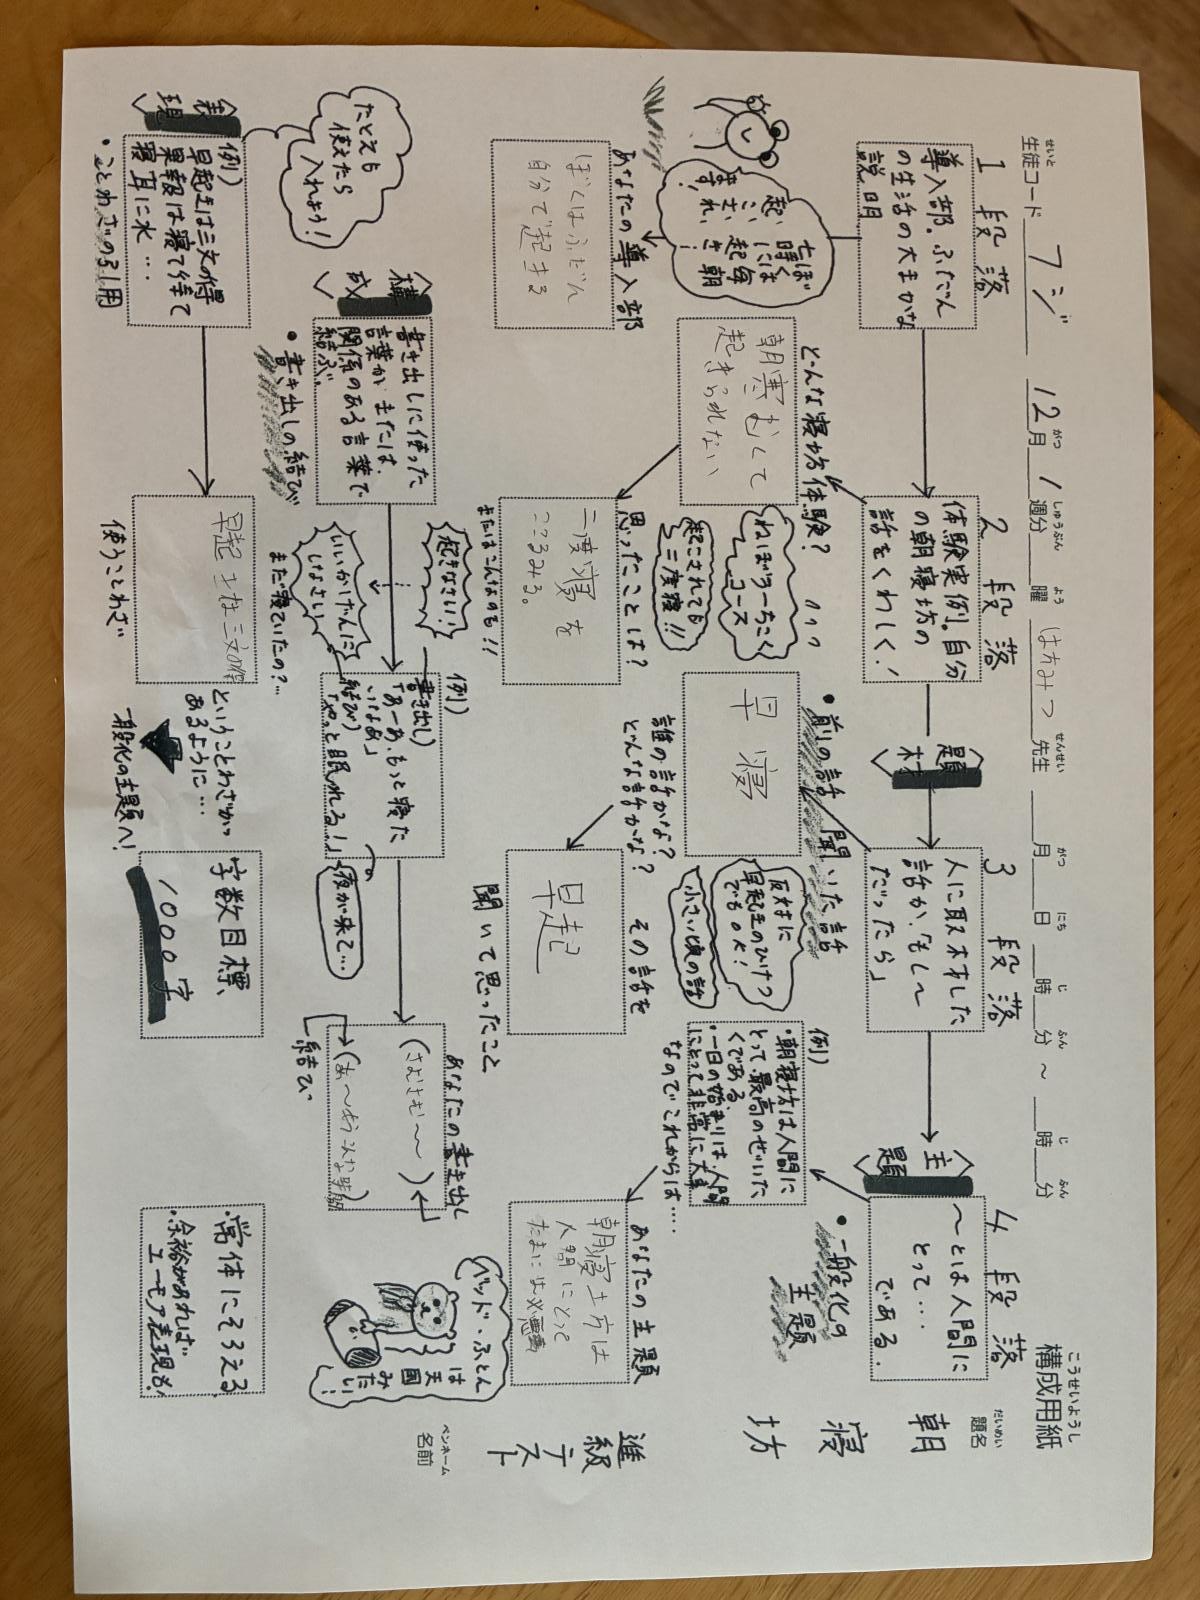 構成用紙
こうせいようし
生徒コード
せいと
フジ
12月1週分
がつ
しゅうぶん
曜
よう
はちみつ先生
せんせい
月 日 時 分 ~ 時 分
がつ にち じ ふん じ ふん
題名
だいめい
朝寝坊
進級テスト
ペンネーム
名前
1段落
導入部。ふだん
の生活の大まかな
説明
2段落
体験実例。自分
の朝寝坊の
話をくわしく!
題材
3段落
人に取材した
話か、「もし~
だったら」
主題
4段落
~とは人間に
とって…
である。
ぼくは
七時に
起こされ、
毎朝
起き
ます!
あなたの導入部
ぼくはふだん
自分で起きる
どんな寝坊体験?
朝寒むくて
起きられない
ねぼう→ちこく
コース
起こされても
二度寝!!
思ったことは?
二度寝を
こころみる。
またはこんなのも!!
・前の話 聞いた話
早寝
誰の話かな?
どんな話かな?
反対に
早起きのひけつ
でもOK!
小さい頃の話
その話を
聞いて思ったこと
早起
・一般化の
主題
例)
・朝寝坊は人間に
とって、最高のぜいた
くである。
・一日の始まりは、人間
にとって非常に大事
なのでこれからは….
あなたの主題
朝寝坊は
人間にとって
たまには必要
ベッド・ふとん
は
天国
みたい!
構成
書き出しに使った
言葉か、または、
関係のある言葉で
結ぶ。
・書き出しの結び
起きなさい!
いいかげんに
しなさい!
まだ寝ていたの?…
例)
書き出し)
「あーあ、もっと寝た
いなあ」
結び)
「やっと眠れる!」
夜が来て…
あなたの書き出し
(さむさむ~~)
結び
表現
たとえも
使えたら
入れよう!
例)
早起きは三文の得
果報は寝て待て
寝耳に水…
・ことわざの引用
早起きは三文の得
使うことわざ
ということわざが
あるように…
一般化の主題へ!
字数目標、
1000字
・常体にそろえる
・余裕があれば
ユーモア表現も!